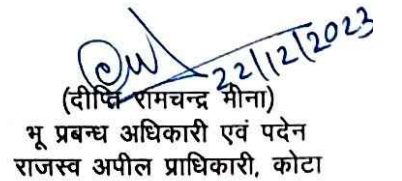 22/12/2023
(दीप्ति रामचन्द्र मीना)
भू प्रबन्ध अधिकारी एवं पदेन
राजस्व अपील प्राधिकारी, कोटा